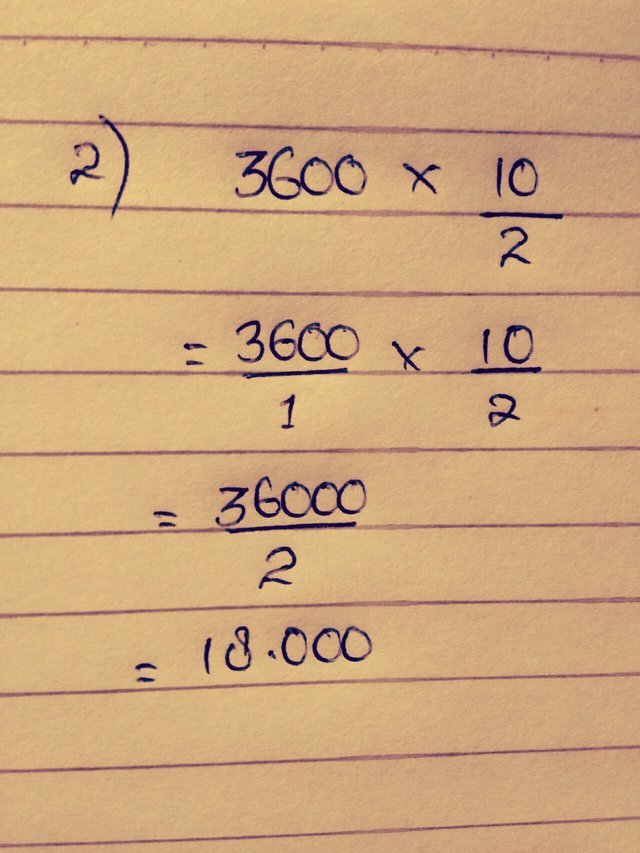 2) 3600 × 10/2
= 3600/1 × 10/2
= 36000/2
= 18.000